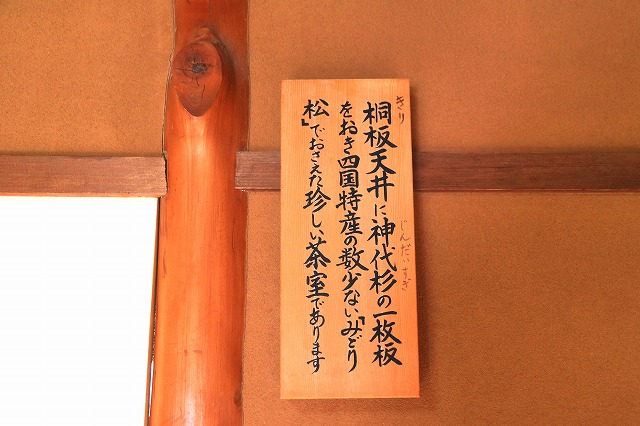 桐板天井に神代杉の一枚板
きり
じんだいすぎ
をおき四国特産の数少ない「みどり
松」でおさえた珍しい茶室であります